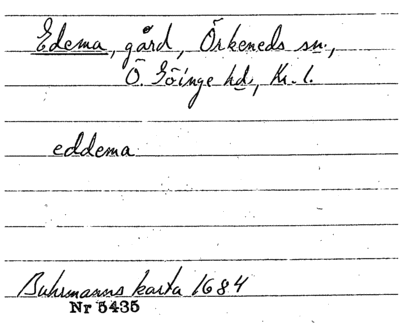 Edema, gård, Örkeneds sn.,
Ö. Göinge hd, Kr. l.
eddema
Buhrmanns karta 1684
Nr 5435